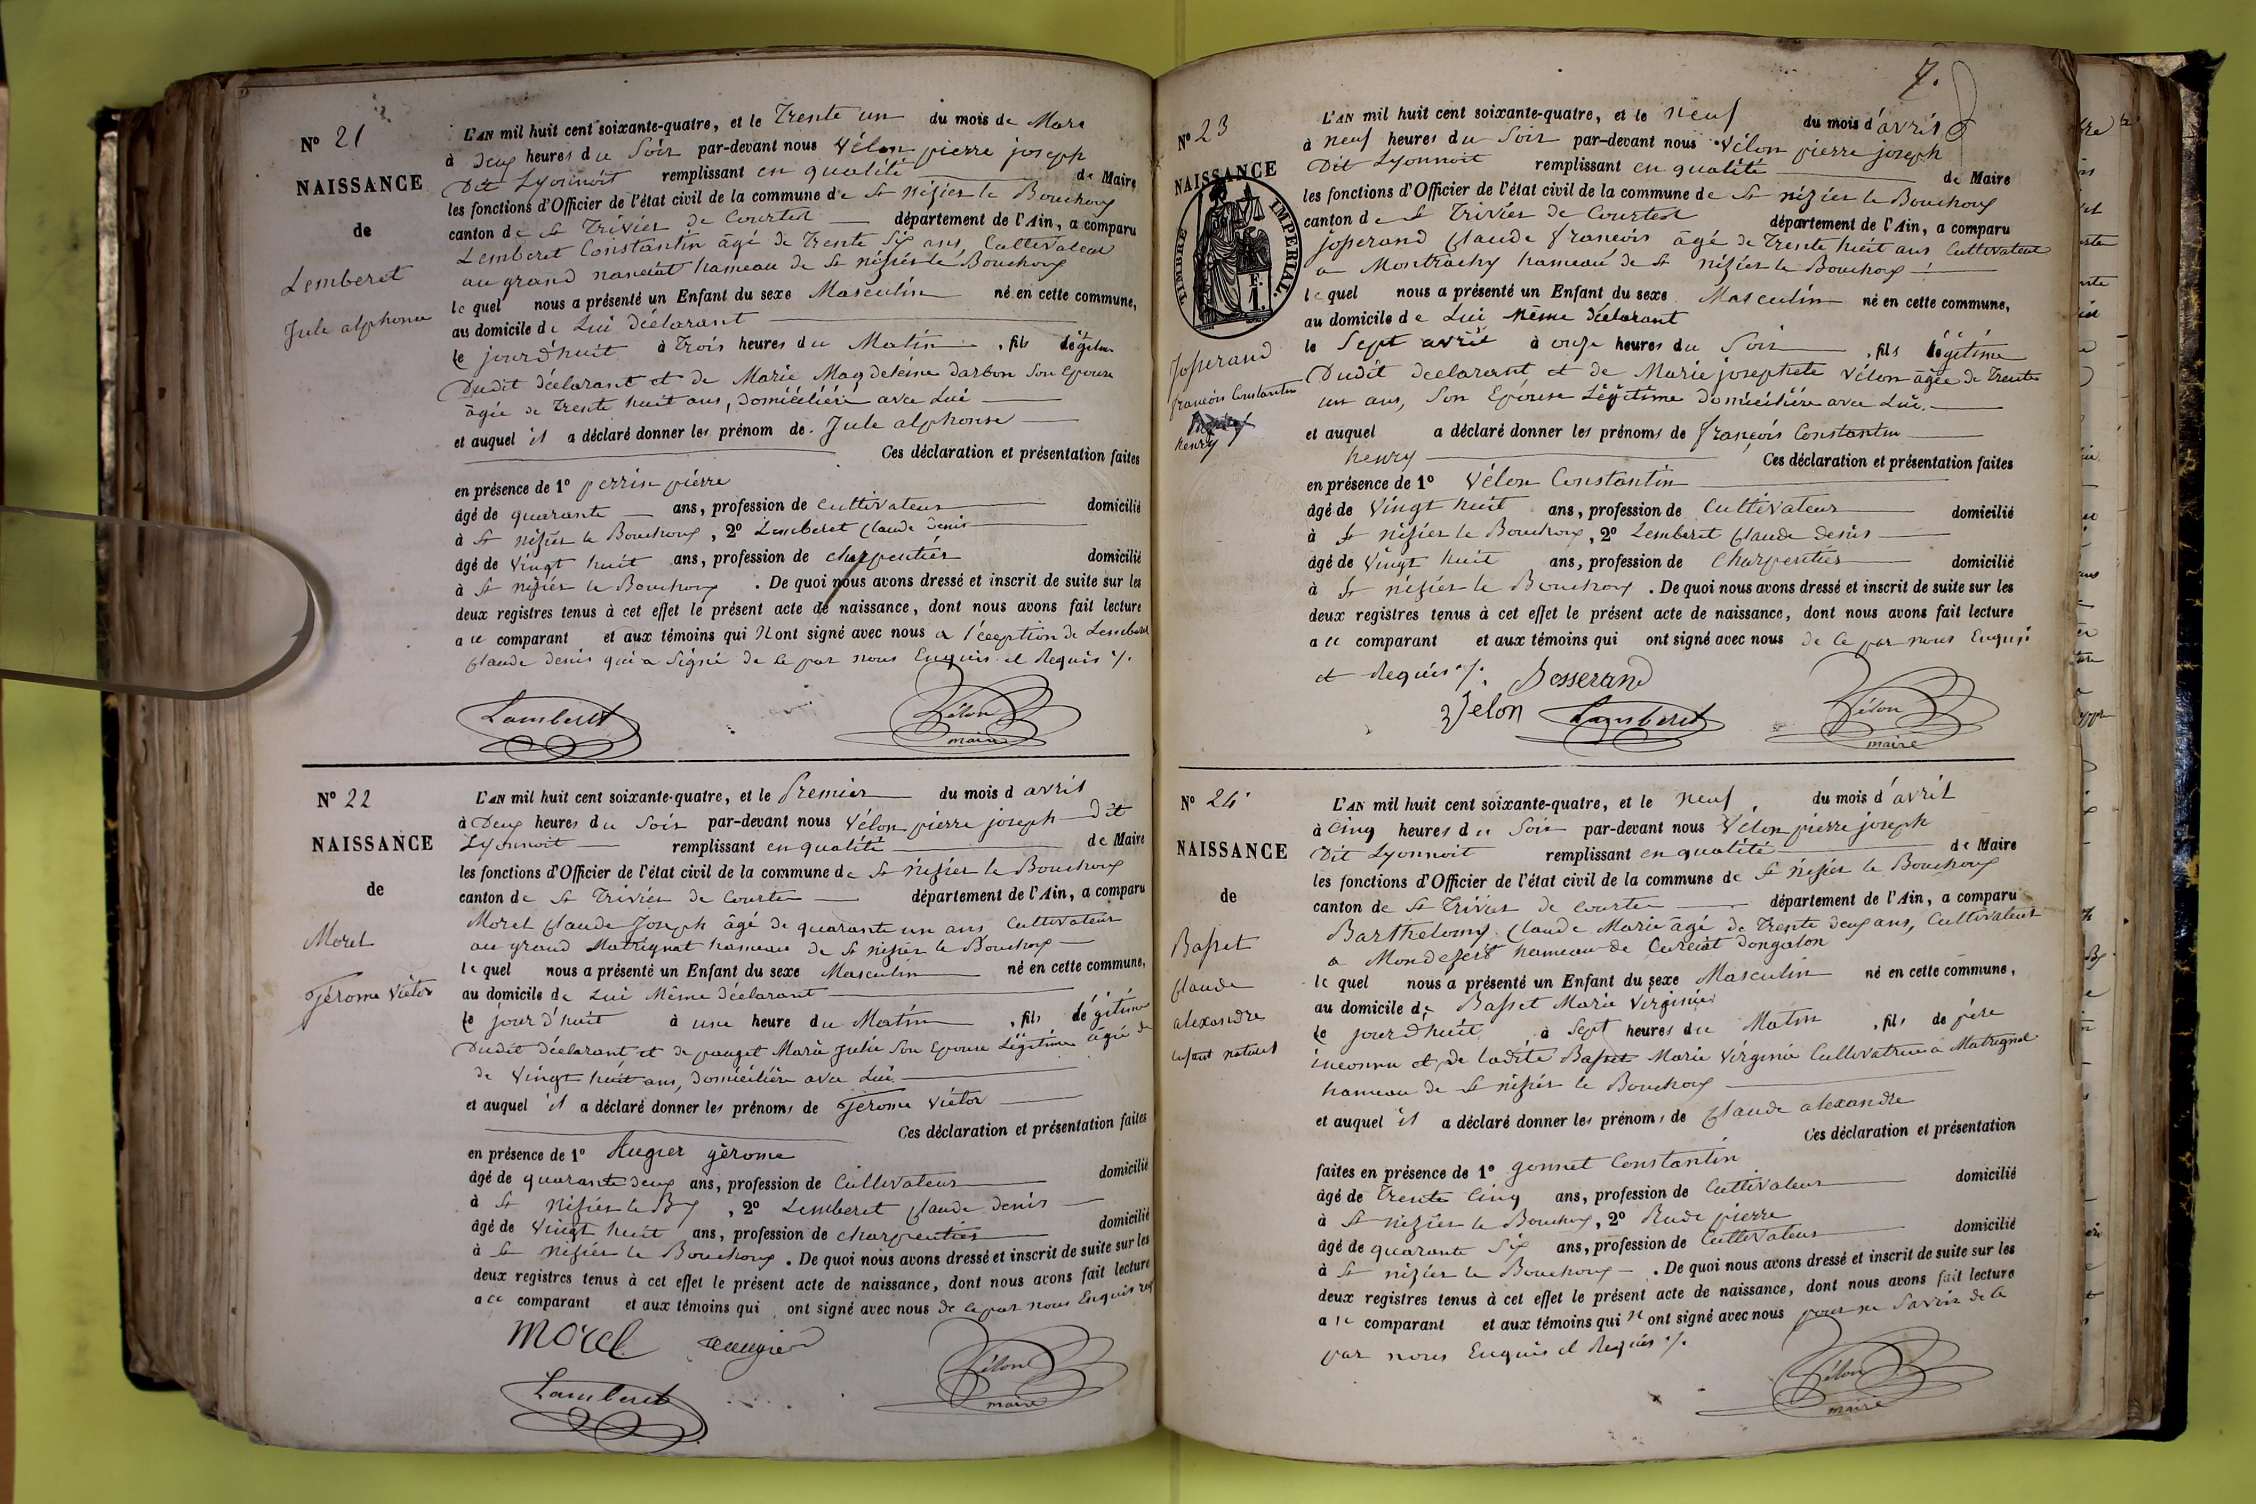 Nº 21
NAISSANCE
de
Lemberet
Jule alphonse
L'AN mil huit cent soixante-quatre, et le Trente un du mois de Mars
à deux heures du Soir par-devant nous Vélon pierre joseph
Dit Lyonnoit remplissant en qualité de Maire
les fonctions d'Officier de l'état civil de la commune de St nizier le Bouchoux
canton de St Trivier de Courtet département de l'Ain, a comparu
Lemberet Constantin âgé de Trente Six ans, Cultivateur
au grand hameau de St nizier le Bouchoux
le quel nous a présenté un Enfant du sexe Masculin né en cette commune,
au domicile de Lui déclarant
le jour d'huit à Trois heures du Matin, fils légitime
Dudit déclarant et de Marie Magdeleine darbon Son Epouse
âgée de Trente huit ans, domiciliée avec Lui
et auquel il a déclaré donner les prénom de Jule alphonse
Ces déclaration et présentation faites
en présence de 1º perrin pierre
âgé de quarante ans, profession de Cultivateur domicilié
à St nizier le Bouchoux, 2º Lemberet Claude denis
âgé de Vingt huit ans, profession de charpentier domicilié
à St nizier le Bouchoux. De quoi nous avons dressé et inscrit de suite sur les
deux registres tenus à cet effet le présent acte de naissance, dont nous avons fait lecture
a ce comparant et aux témoins qui Nont signé avec nous a l'éception de Lemberet
Claude denis qui a Signé de ce par nous Enquis et Requis ./.
Lamberet
Vélon
maire
Nº 22
NAISSANCE
de
Morel
Jérome Victor
L'AN mil huit cent soixante-quatre, et le Premier du mois d avril
à Deux heures du Soir par-devant nous Vélon pierre joseph Dit
Lyonnoit remplissant en qualité de Maire
les fonctions d'Officier de l'état civil de la commune de St nizier le Bouchoux
canton de St Trivier de Courte département de l'Ain, a comparu
Morel Claude Joseph âgé de quarante un ans Cultivateur
au grand Matrignat hameau de St nizier le Bouchoux
le quel nous a présenté un Enfant du sexe Masculin né en cette commune,
au domicile de Lui Même déclarant
le jour d'huit à une heure du Matin, fils légitime
Dudit déclarant et de pauget Marie Julie Son Epouse Légitime âgée de
de Vingt huit ans, domiciliée avec Lui
et auquel il a déclaré donner les prénoms de Jérome Victor
Ces déclaration et présentation faites
en présence de 1º Augier gérome
âgé de quarante deux ans, profession de Cultivateur domicilié
à St Nizier le Bx, 2º Lemberet Claude denis
âgé de Vingt huit ans, profession de charpentier domicilié
à St Nizier le Bouchoux. De quoi nous avons dressé et inscrit de suite sur les
deux registres tenus à cet effet le présent acte de naissance, dont nous avons fait lecture
a ce comparant et aux témoins qui ont signé avec nous de ce par nous Enquis req
Morel
augier
Lamberet
Vélon
maire
7.
Nº 23
NAISSANCE
TIMBRE IMPERIAL.
F.
1.
Josserand
francois Constantin
henry
L'AN mil huit cent soixante-quatre, et le neuf du mois d'avril
à neuf heures du Soir par-devant nous Vélon pierre joseph
Dit Lyonnoit remplissant en qualité de Maire
les fonctions d'Officier de l'état civil de la commune de St nizier le Bouchoux
canton de St Trivier de Courtet département de l'Ain, a comparu
josserand Claude francois âgé de Trente huit ans Cultivateur
a Montrachy hameau de St nizier le Bouchoux
le quel nous a présenté un Enfant du sexe Masculin né en cette commune,
au domicile de Lui Même déclarant
le Sept avril à onze heures du Soir, fils légitime
Dudit declarant et de Marie josephete Vélon âgée de Trente
un ans, Son Epouse Légitime domiciliée avec Lui.
et auquel a déclaré donner les prénoms de françois Constantin
henry Ces déclaration et présentation faites
en présence de 1º Vélon Constantin
âgé de Vingt huit ans, profession de Cultivateur domicilié
à St nizier le Bouchoux, 2º Lemberet Claude denis
âgé de Vingt huit ans, profession de Charpentier domicilié
à St nizier le Bouchoux. De quoi nous avons dressé et inscrit de suite sur les
deux registres tenus à cet effet le présent acte de naissance, dont nous avons fait lecture
a ce comparant et aux témoins qui ont signé avec nous de ce par nous Enquis
et Requis ./. Josserand
Velon Lamberet
Vélon
maire
Nº 24
NAISSANCE
de
Basset
Claude
alexandre
enfant naturel
L'AN mil huit cent soixante-quatre, et le neuf du mois d'avril
à Cinq heures du Soir par-devant nous Vélon pierre joseph
Dit Lyonnoit remplissant en qualité de Maire
les fonctions d'Officier de l'état civil de la commune de St nizier le Bouchoux
canton de St Trivier de Courte département de l'Ain, a comparu
Barthelomy Claude Marie âgé de Trente deux ans, Cultivateur
a Mondesert hameau de Curciat dongalon
le quel nous a présenté un Enfant du sexe Masculin né en cette commune,
au domicile de Basset Marie Virginie
le jour d'huit à Sept heures du Matin, fils de père
inconnu et de ladite Basset Marie Virginie Cultivatrice à Matrignat
hameau de St nizier le Bouchoux
et auquel il a déclaré donner les prénoms de Claude alexandre
Ces déclaration et présentation
faites en présence de 1º gonnet Constantin
âgé de Trente Cinq ans, profession de Cultivateur domicilié
à St nizier le Bouchoux, 2º Rude pierre
âgé de quarante Six ans, profession de Cultivateur domicilié
à St nizier le Bouchoux. De quoi nous avons dressé et inscrit de suite sur les
deux registres tenus à cet effet le présent acte de naissance, dont nous avons fait lecture
a ce comparant et aux témoins qui N'ont signé avec nous pour ne Savoir de ce
par nous Enquis et Requis ./.
Vélon
maire